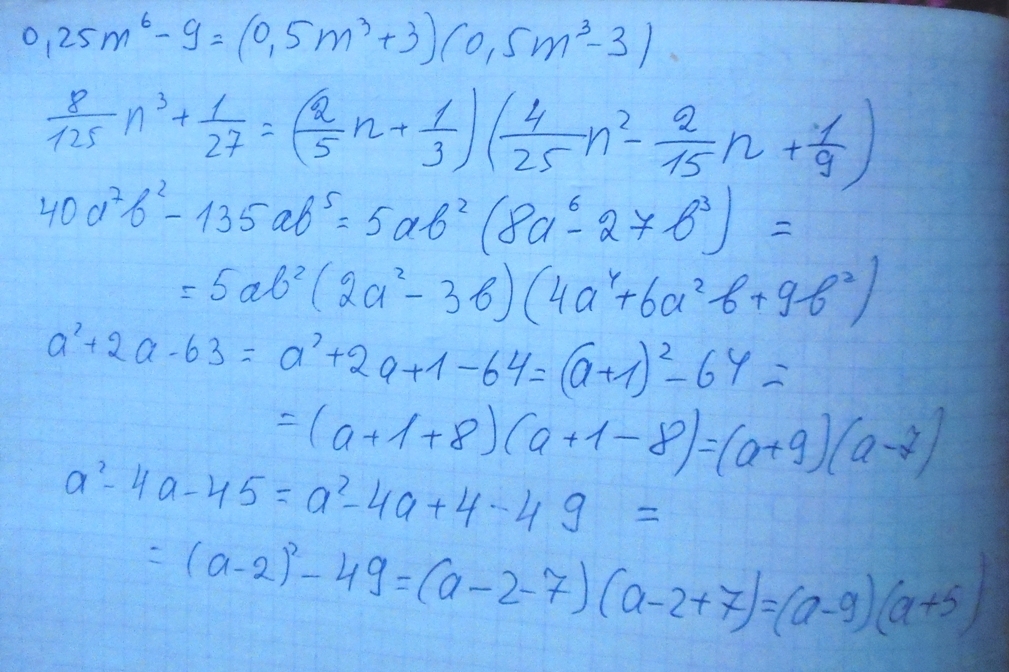 0,25m⁶ - 9 = (0,5m³+3)(0,5m³-3)
8/125 n³ + 1/27 = (2/5 n + 1/3)(4/25 n² - 2/15 n + 1/9)
40a⁷b² - 135ab⁵ = 5ab²(8a⁶ - 27b³) =
= 5ab²(2a² - 3b)(4a⁴+6a²b+9b²)
a²+2a-63 = a²+2a+1-64 = (a+1)²-64 =
= (a+1+8)(a+1-8) = (a+9)(a-7)
a²-4a-45 = a²-4a+4-49 =
= (a-2)²-49 = (a-2-7)(a-2+7) = (a-9)(a+5)